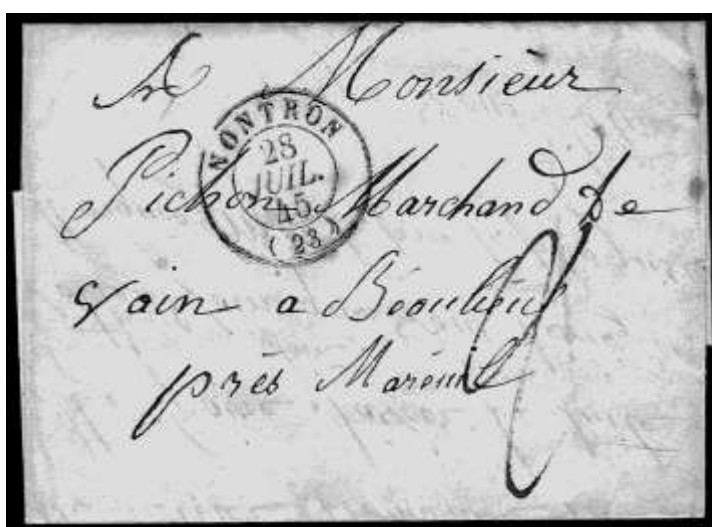 A Monsieur
NONTRON
28
JUIL.
45
(23)
Pichon Marchand de
vain a Béaulieu
près Maréuil
2